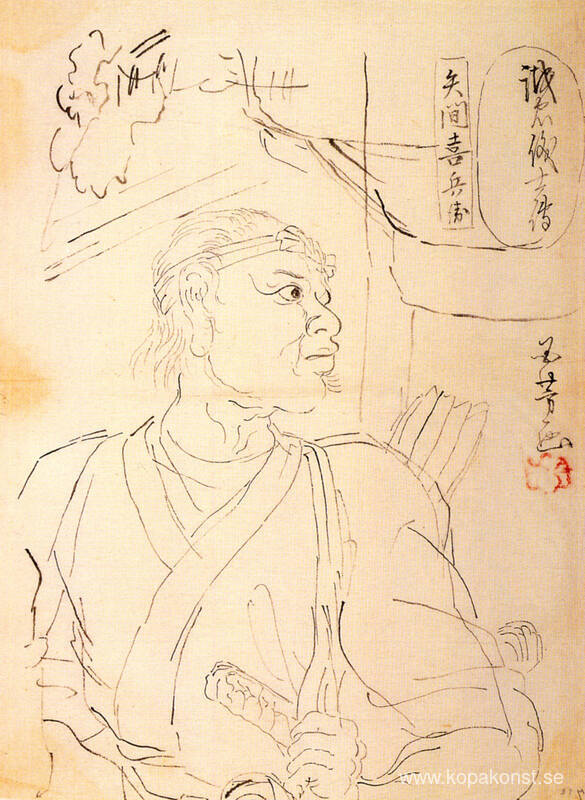 誠忠儀士傳
矢間喜兵衛
国芳画
www.kopakonst.se